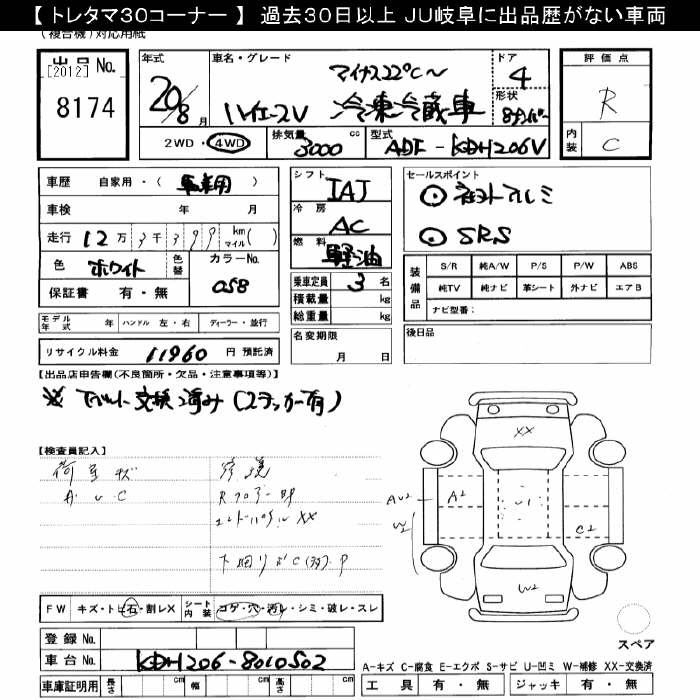 【 トレタマ30コーナー 】 過去30日以上 JU岐阜に出品歴がない車両
(複合機)対応用紙
出品No.
[2012]
8174
年式
20/8月
車名・グレード
マイナス22℃〜
ハイエースV 冷凍冷蔵車
ドア
4
形状
8ナンバー
評価点
R
内装
C
2WD・4WD
排気量
3000 cc
型式
ADF-KDH206V
車歴 自家用・( 事業用 )
車検 年 月
走行 12万3千399 km マイル ( )
色 ホワイト
色替
カラーNo.
058
保証書 有・無
シフト
IAT
冷房
AC
燃料
軽油
乗車定員 3 名
積載量 kg
総重量 kg
セールスポイント
SRS
装備品
S/R 純A/W P/S P/W ABS
純TV 純ナビ 革シート 外ナビ エアB
ナビ型番:
モデル年式 年 ハンドル 左・右 ディーラー・並行
名変期限
月 日
後日品
リサイクル料金 11960 円 預託済
【出品店申告欄(不良箇所・欠品・注意事項等)】
※ T/ベルト交換済み(ステッカー有)
【検査員記入】
荷室キズ
A U C
修復
Rフロアー
エンドパネルXX
下回りサビC(有)P
XX
AU2
A2
U1
W2
C2
W2
FW キズ・トビ石・割レX
シート内装
コゲ・穴・汚レ・シミ・破レ・スレ
スペア
登録No.
車台No. KDH206-8010502
車庫証明用 長さ cm 幅 cm 高さ cm
A-キズ C-腐食 E-エクボ S-サビ U-凹ミ W-補修 XX-交換済
工具 有・無 ジャッキ 有・無